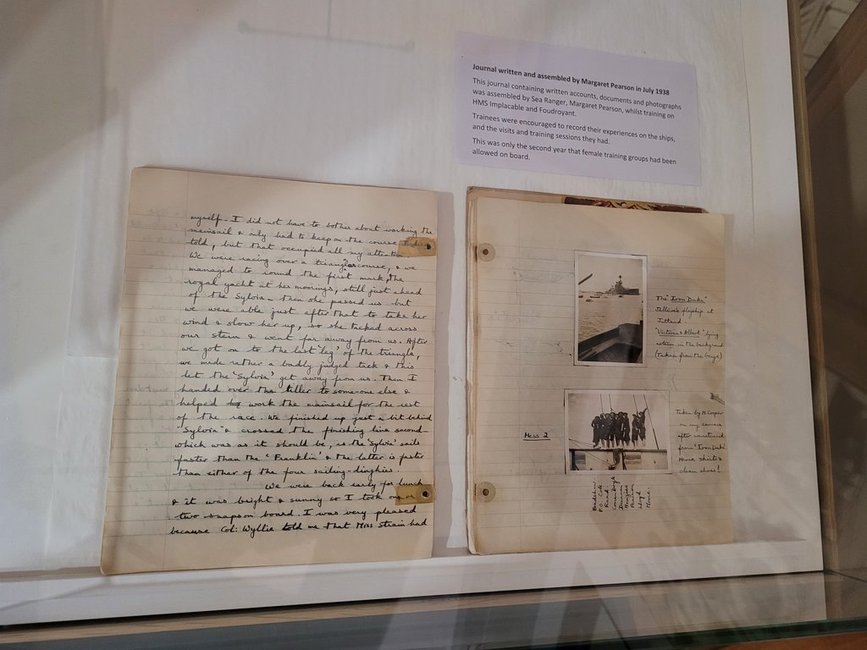 Journal written and assembled by Margaret Pearson in July 1938
This journal containing written accounts, documents and photographs
was assembled by Sea Ranger, Margaret Pearson, whilst training on
HMS Implacable and Foudroyant.
Trainees were encouraged to record their experiences on the ships,
and the visits and training sessions they had.
This was only the second year that female training groups had been
allowed on board.
myself. I did not have to bother about working the
mainsail & only had to keep on the course
told, but that occupied all my
We were racing over a triangular course, & we
managed to round the first mark, the
royal yacht at her moorings, still just ahead
of the Sylvia. Then she passed us but
we were able just after that to take her
wind & slow her up, so she tacked across
our stern & went far away from us. After
we got on to the last 'leg' of the triangle,
we made rather a badly judged tack & this
let the 'Sylvia' get away from us. Then I
handed over the tiller to some-one else &
helped work the mainsail for the rest
of the race. We finished up just a bit behind
'Sylvia' & crossed the finishing line second
which was as it should be, as the 'Sylvia' sails
faster than the 'Franklin' & the latter is faster
than either of the four sailing-dinghies.
We were back early for lunch
& it was bright & sunny so I took one or
two snaps on board. I was very pleased
because Col: Wyllie told me that Miss Strain had
The "Iron Duke"
Jellicoe's flagship at
Jutland
"Victoria & Albert" lying
astern in the background
(taken from the barge)
Mess 2
Taken by M. Cooper
on my camera
after
from "Iron Duke"
clean shoes!